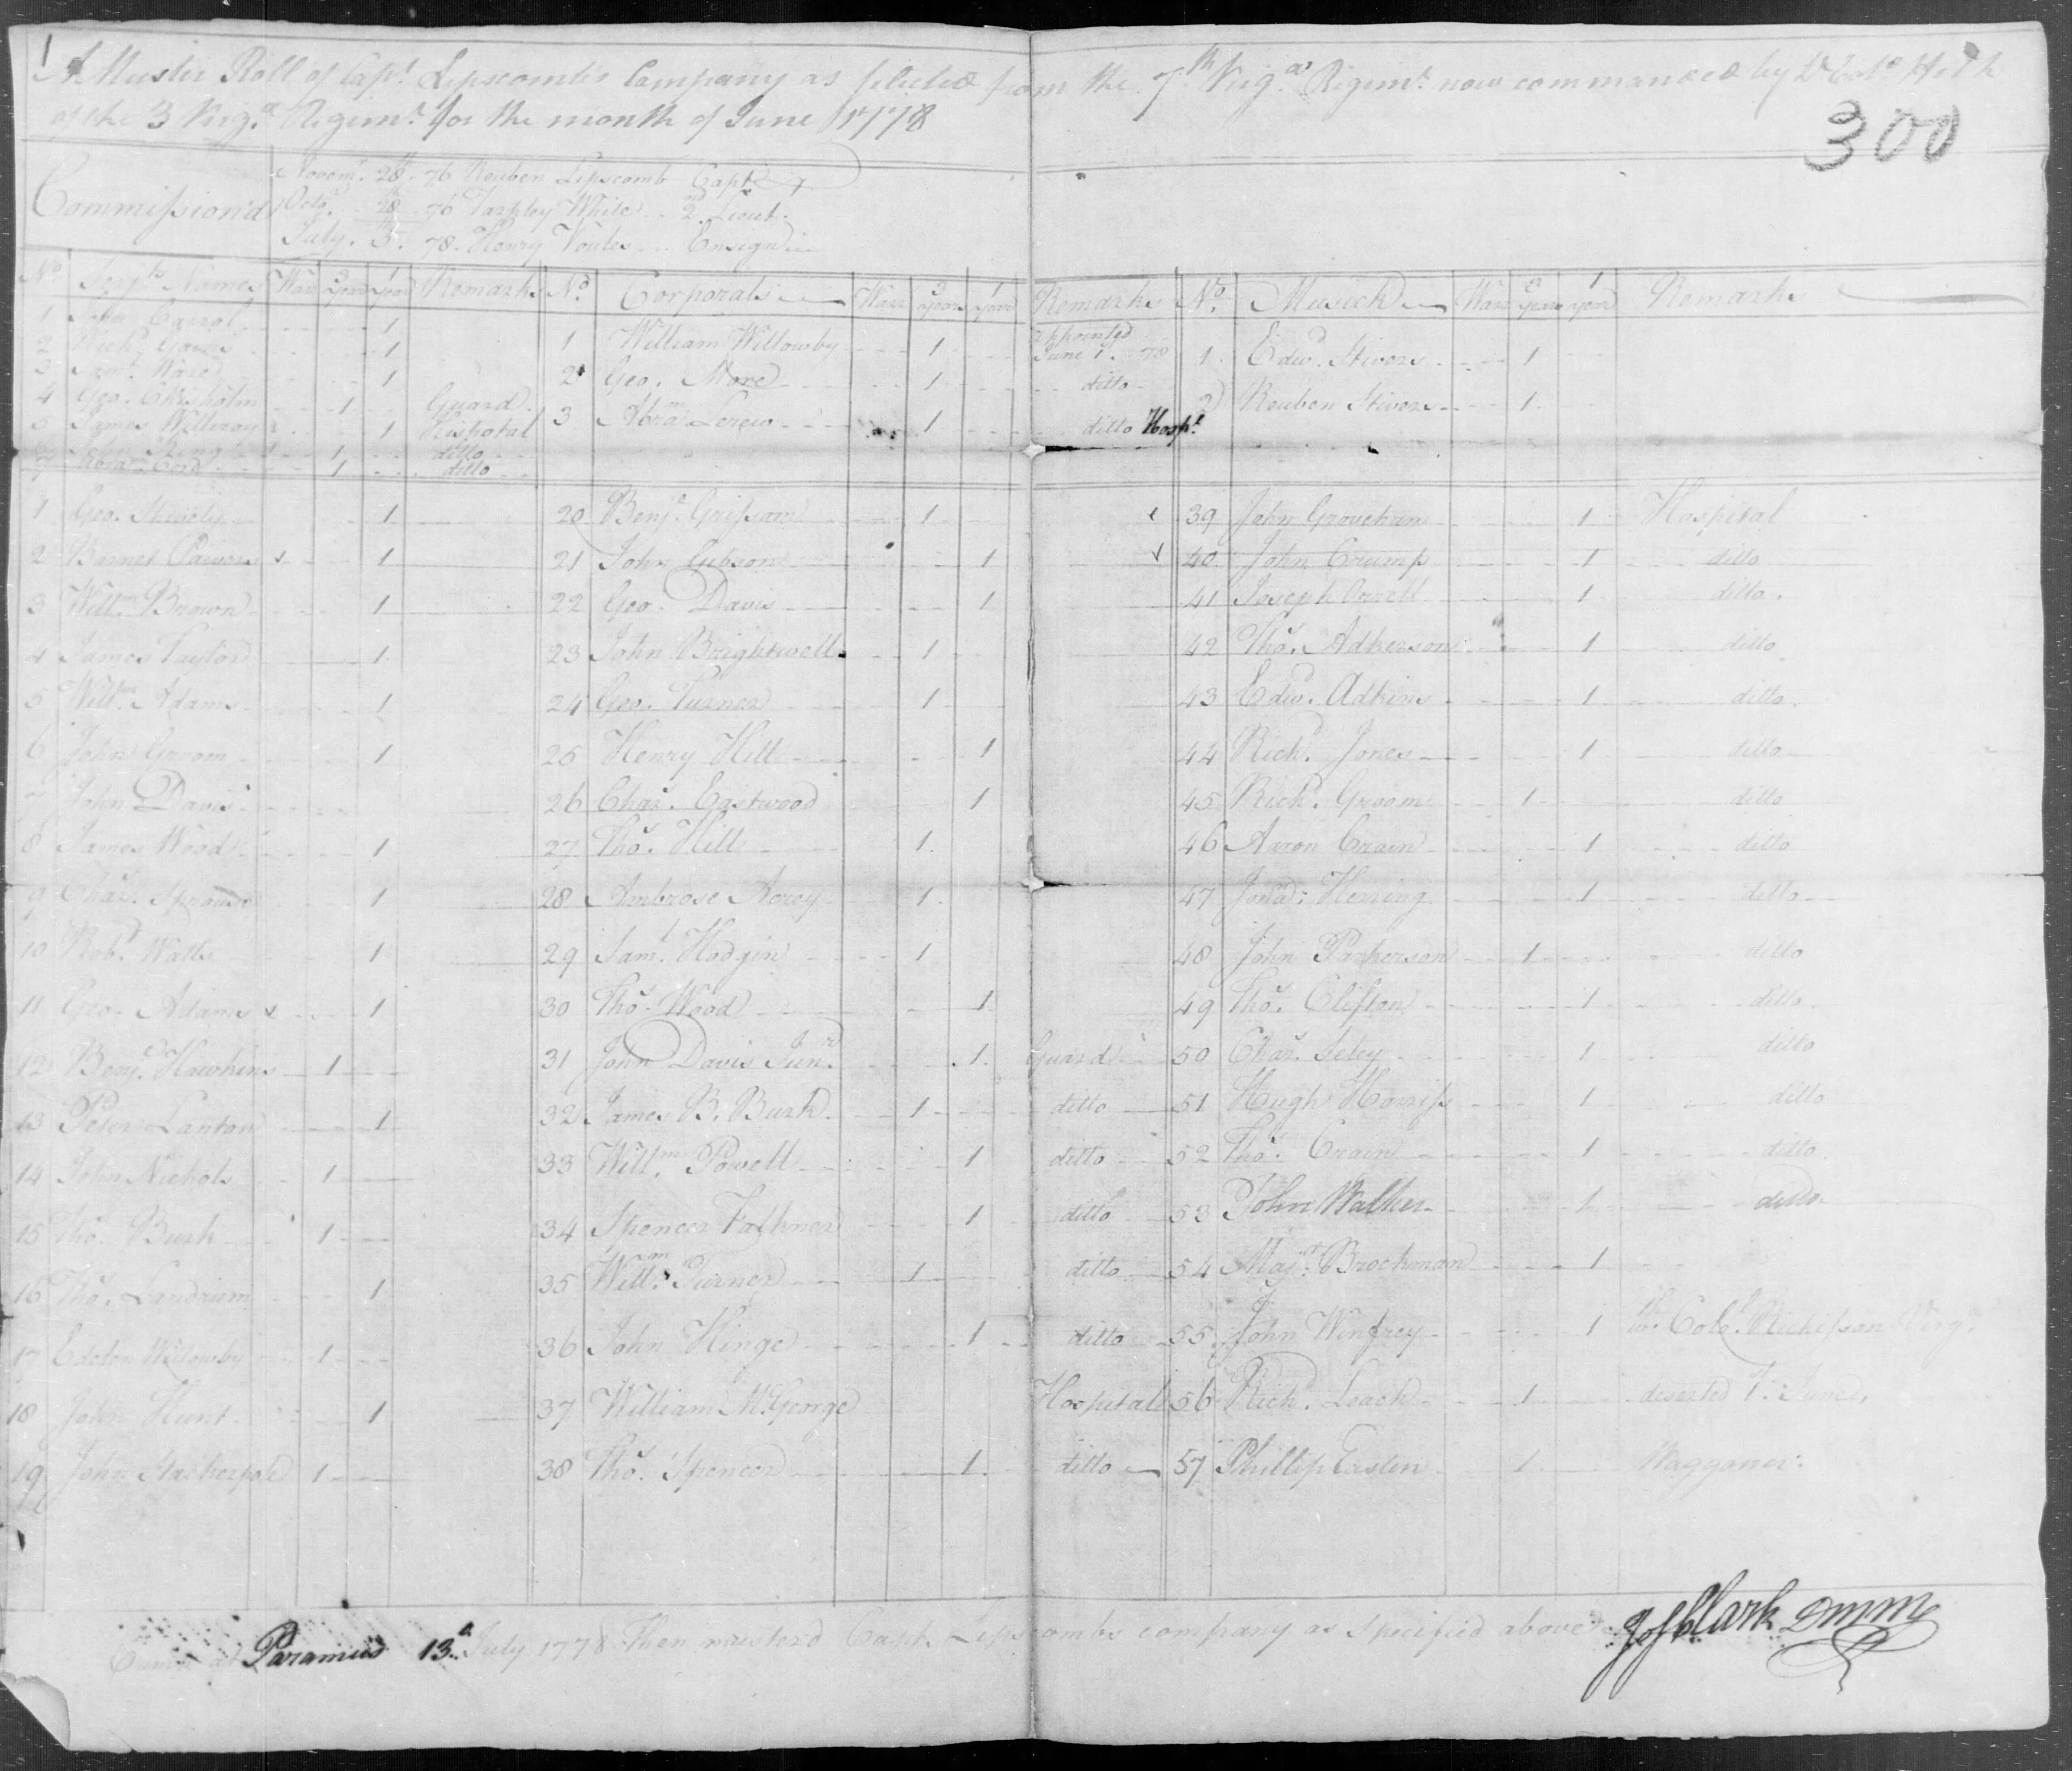 1
A Muster Roll of Capt. Lipscomb's Company as selected from the 7th Virga. Regimt. now commanded by Lt. Colo. Heth
of the 3 Virga. Regimt. for the month of June 1778
300
Commission'd
Novemr. 28th. 76 Reuben Lipscomb Capt.
Octo. 28 76 Tarpley White 2nd. Lieut.
July. 3. 78. Henry Voules Ensign
No. Serjts. Names War 3 years 1 year Remarks
1 John Carrol 1
2 1
3 Saml. Ware 1
4 Geo. Chisholm 1 Guard
5 James 1 Hospotal
6 1 ditto
7 1 ditto
No. Corporals War 3 years 1 year Remarks
1 William Willowby 1 appointed June 1. 78
2 Geo. More 1 ditto
3 Abram. 1 ditto Hospl.
No. Musick War 3 years 1 year Remarks
1 Edwd. Stivers 1
2 Reuben Stivers 1
1 Geo. 1
2 Barnet 1
3 Willm. Brown 1
4 James Taylor 1
5 Willm. Adams 1
6 John Groom 1
7 John Davis
8 James Wood 1
9 Chas. Sprouse 1
10 Robt. Watts 1
11 Geo. Adams 1
12 Benja. Hawkins 1
13 Peter Lanton 1
14 John Nichols 1
15 Thos. Burk 1
16 Thos. Landrum 1
17 Edelon Willowby 1
18 John Hunt 1
19 John Stackerpole 1
20 Benja. Grissam 1
21 John Gibson 1
22 Geo. Davis 1
23 John Brightwell 1
24 Geo. Turner 1
25 Henry Hill 1
26 Chas. Eastwood 1
27 Thos. Hill 1
28 Ambrose Acrey 1
29 Saml. Hodgin 1
30 Thos. Wood 1
31 John Davis Junr. 1 Guard
32 James B. Burk 1 ditto
33 Willm. Powell 1 ditto
34 Spencer Falkner 1 ditto
35 Willm. Turner 1 ditto
36 John Hinge 1 ditto
37 William McGeorge Hospital
38 Thos. Spencer 1 ditto
39 John Groveham 1 Hospital
40 John Crump 1 ditto
41 Joseph 1 ditto
42 Thos. Adkerson 1 ditto
43 Edwd. Adkins 1 ditto
44 Richd. Jones 1 ditto
45 Richd. Groom 1 ditto
46 Aaron Crain 1 ditto
47 Jona: Herring 1 ditto
48 John Parkerson 1 ditto
49 Thos. Clifton 1 ditto
50 Chas. Seley 1 ditto
51 Hugh Harriss 1 ditto
52 Thos. Crain 1 ditto
53 John Walker 1 ditto
54 Majr. Brockman 1
55 John Winfrey 1 Colo. Virga.
56 Richd. Loach 1 deserted 1st. June
57 Phillip Easten 1 Waggoner
at Paramus 13th. July 1778 Then musterd Capt. Lipscombs company as Specified above
Jos Clark DMM